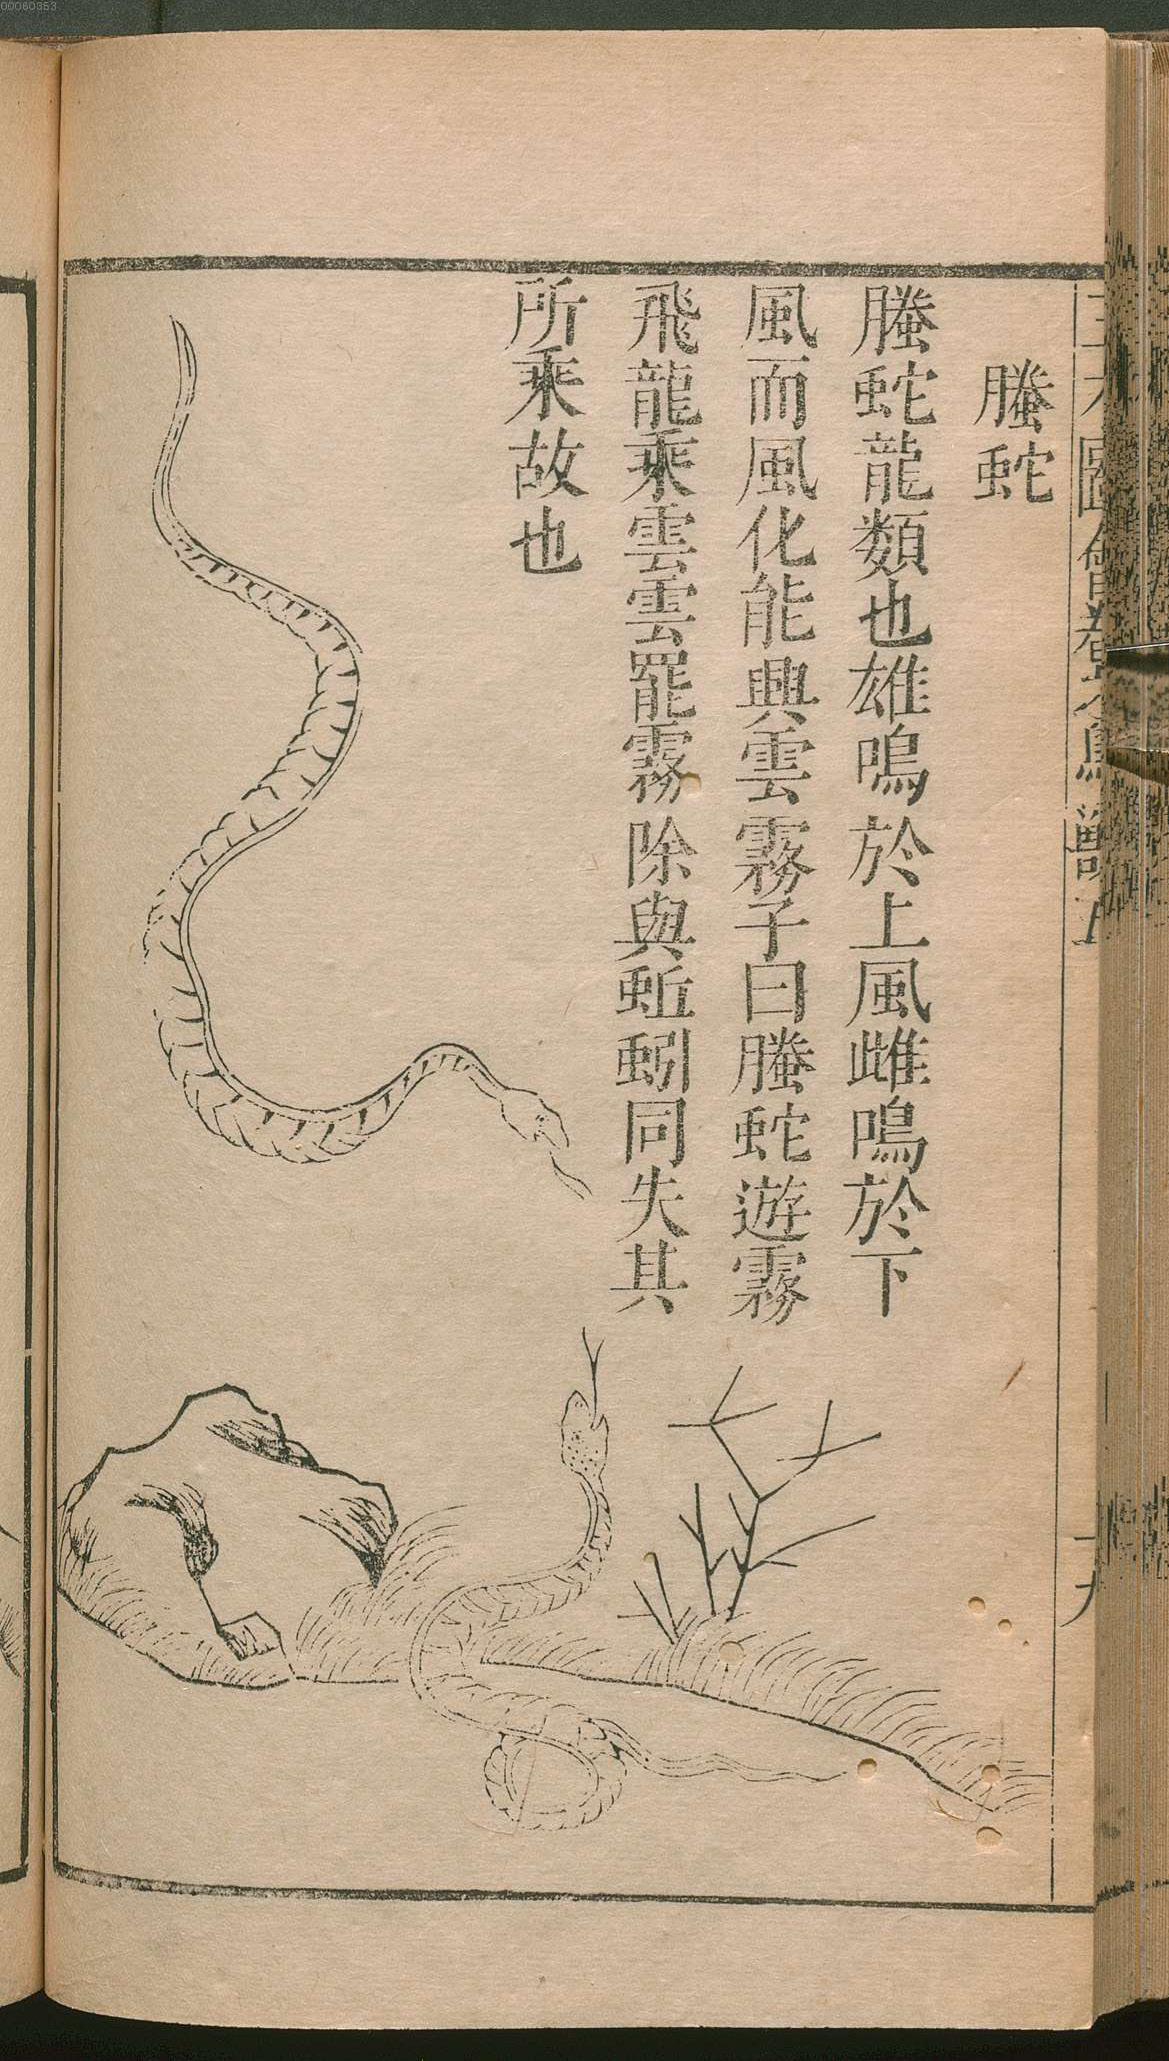 螣蛇
螣蛇龍類也雄鳴於上風雌鳴於下
風而風化能興雲霧子曰螣蛇遊霧
飛龍乘雲雲罷霧除與蚯蚓同失其
所乘故也
00060353